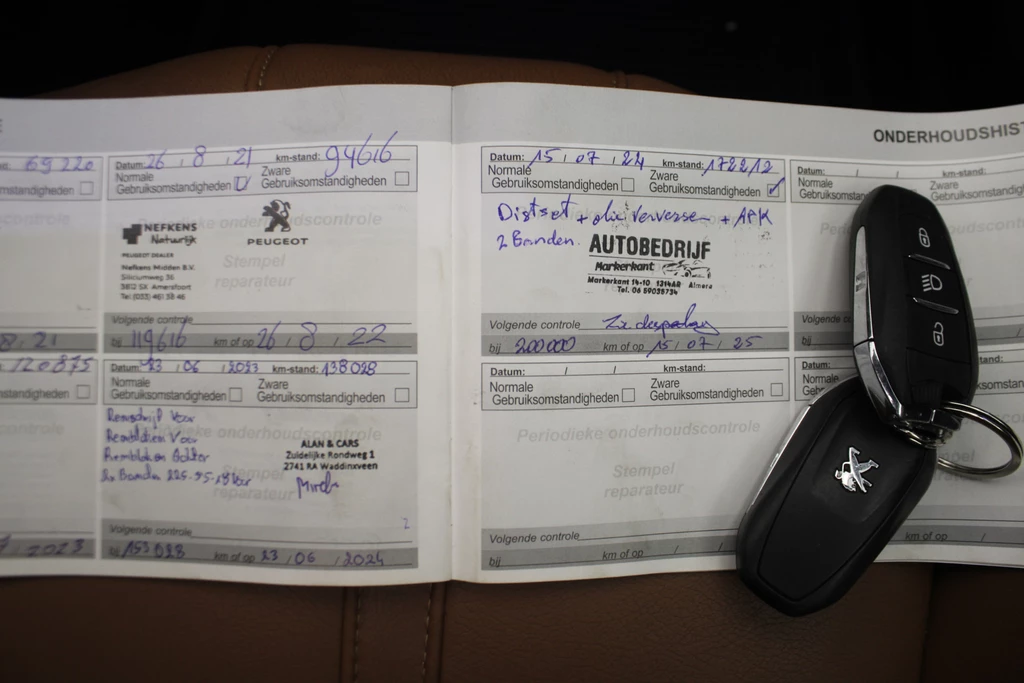 ONDERHOUDSHIST
69 220
standigheden
Datum: 26 / 8 / 21 km-stand: 94616
Normale Gebruiksomstandigheden
Zware Gebruiksomstandigheden
Periodieke onderhoudscontrole
NEFKENS
Natuurlijk
PEUGEOT
PEUGEOT DEALER
Nefkens Midden B.V.
Siliciumweg 36
3812 SX Amersfoort
Tel (033) 461 38 46
Stempel
reparateur
Volgende controle
bij 119616 km of op 26 / 8 / 22
8 / 21
120875
standigheden
Datum: 23 / 06 / 2023 km-stand: 138028
Normale Gebruiksomstandigheden
Zware Gebruiksomstandigheden
Periodieke onderhoudscontrole
Remschijf Voor
Remblokken Voor
Remblokken Achter
2x Banden 225-55-18 Voor
ALAN & CARS
Zuidelijke Rondweg 1
2741 RA Waddinxveen
Stempel
reparateur
Volgende controle
bij 153028 km of op 23 / 06 / 2024
2023
Datum: 15 / 07 / 24 km-stand: 172212
Normale Gebruiksomstandigheden
Zware Gebruiksomstandigheden
Distset + olie verversen + APK
2 Banden
AUTOBEDRIJF
Markerkant
Markerkant 14-10 1314AR Almere
Tel. 06 59035734
Volgende controle
bij 200000 km of op 15 / 07 / 25
Datum: / / km-stand:
Normale Gebruiksomstandigheden
Zware Gebruiksomstandigheden
Periodieke onderhoudscontrole
Stempel
reparateur
Volgende controle
bij km of op / /
Datum: / / km-stand:
Normale
Zware
Gebruiksomstandigheden
Volgende
bij
Datum:
Normale
km of op / /